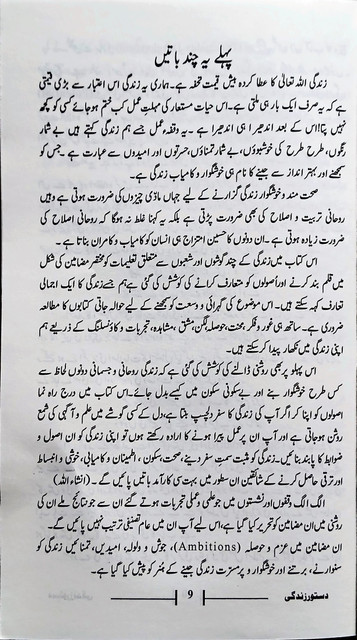 پہلے یہ چند باتیں
زندگی اللہ تعالیٰ کا عطا کردہ بیش قیمت تحفہ ہے۔ ہماری یہ زندگی اس اعتبار سے بڑی قیمتی
ہے کہ یہ صرف ایک بار ہی ملتی ہے۔ اس حیات مستعار کی مہلتِ عمل کب ختم ہو جائے کسی کو کچھ
نہیں پتا اس کے بعد اندھیرا ہی اندھیرا ہے۔ یہ وقفہ عمل جسے ہم زندگی کہتے ہیں بے شمار
رنگوں، طرح طرح کی خوشبوؤں، بے شمار تمناؤں، حسرتوں اور امیدوں سے عبارت ہے۔ جس کو
سمجھنے اور بہتر انداز سے جینے کا نام ہی خوشگوار و کامیاب زندگی ہے۔
صحت مند و خوشگوار زندگی گزارنے کے لیے جہاں مادّی چیزوں کی ضرورت ہوتی ہے وہیں
روحانی تربیت و اصلاح کی بھی ضرورت پڑتی ہے بلکہ یہ کہنا غلط نہ ہوگا کہ روحانی اصلاح کی
ضرورت زیادہ ہوتی ہے۔ ان دونوں کا حسین امتزاج ہی انسان کو کامیاب و کامران بناتا ہے۔
اس کتاب میں زندگی کے چند گوشوں اور شعبوں سے متعلق تعلیمات کو مختصر مضامین کی شکل
میں قلم بند کرنے اور اصولوں کو متعارف کرانے کی کوشش کی گئی ہے ہم جسے زندگی کا ایک اجمالی
تعارف کہہ سکتے ہیں۔ اس موضوع کی گہرائی و وسعت کو سمجھنے کے لیے حوالہ جاتی کتابوں کا مطالعہ
ضروری ہے۔ ساتھ ہی غور و فکر، محنت، حوصلہ، لگن، مشق، مشاہدہ، تجربات و کاؤنسلنگ کے ذریعے ہم
اپنی زندگی میں نکھار پیدا کر سکتے ہیں۔
اس پہلو پر بھی روشنی ڈالنے کی کوشش کی گئی ہے کہ زندگی روحانی و جسمانی دونوں لحاظ سے
کس طرح خوشگوار بنے اور بے سکونی سکون میں کیسے بدل جائے۔ اس کتاب میں درج راہ نما
اصولوں کو اپنا کر اگر آپ کی زندگی کا سفر دلچسپ بنتا ہے، دل کے کسی گوشے میں علم و آگہی کی شمع
روشن ہو جاتی ہے اور آپ ان پر عمل پیرا ہونے کا ارادہ رکھتے ہوں تو اپنی زندگی کو ان اصول و
ضوابط کا پابند بنائیں۔ زندگی کو مثبت سمتِ سفر دینے، صحت، سکون، اطمینان و کامیابی، خوشی و انبساط
اور ترقی حاصل کرنے کے شائقین ان سطور میں بہت سی کارآمد باتیں پائیں گے۔ (انشاء اللہ)
الگ الگ وقفوں اور نشستوں میں جو علمی و عملی تجربات ہوتے گئے ان سے جو نتائج ملے ان کی
روشنی میں ان مضامین کو تحریر کیا گیا ہے، اس لیے آپ ان میں عام تصنیفی ترتیب نہیں پائیں گے۔
ان مضامین میں عزم و حوصلہ (Ambitions)، جوش و ولولہ، امیدیں، تمنائیں زندگی کو
سنوارنے، برتنے اور خوشگوار و پرمسرت زندگی جینے کے ہنر کو پیش کیا گیا ہے۔
دستور زندگی
9